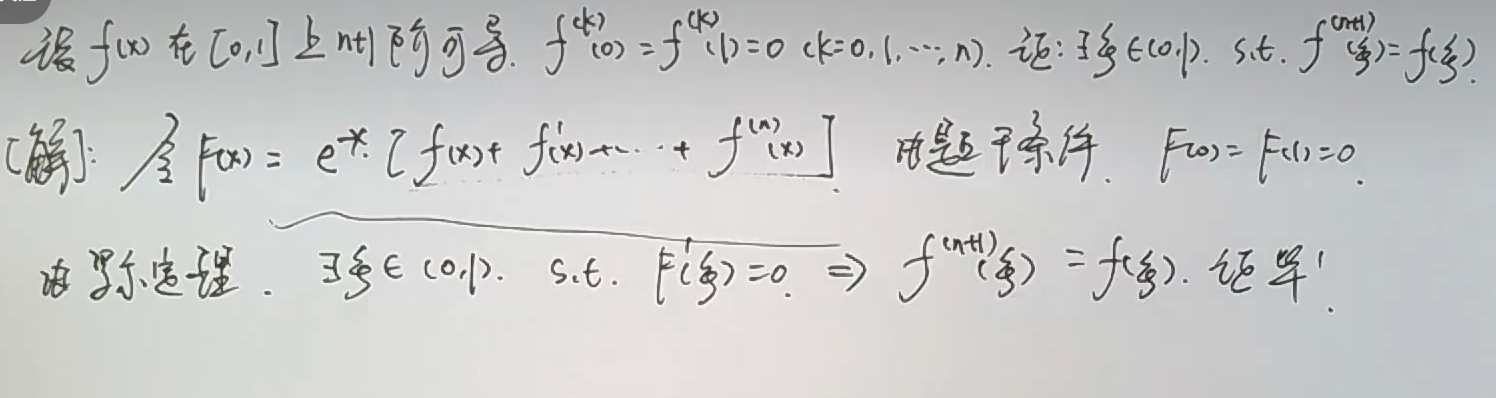 设 f(x) 在 [0,1] 上 n+1 阶可导. f^{(k)}(0) = f^{(k)}(1) = 0 (k=0,1,…,n). 证: ∃ξ∈(0,1). s.t. f^{(n+1)}(ξ) = f(ξ).
[解]: 令 F(x) = e^{-x}·[f(x)+f'(x)+…+f^{(n)}(x)] 由题干条件. F(0) = F(1) = 0.
由罗尔定理. ∃ξ∈(0,1). s.t. F'(ξ) = 0. ⇒ f^{(n+1)}(ξ) = f(ξ). 证毕!